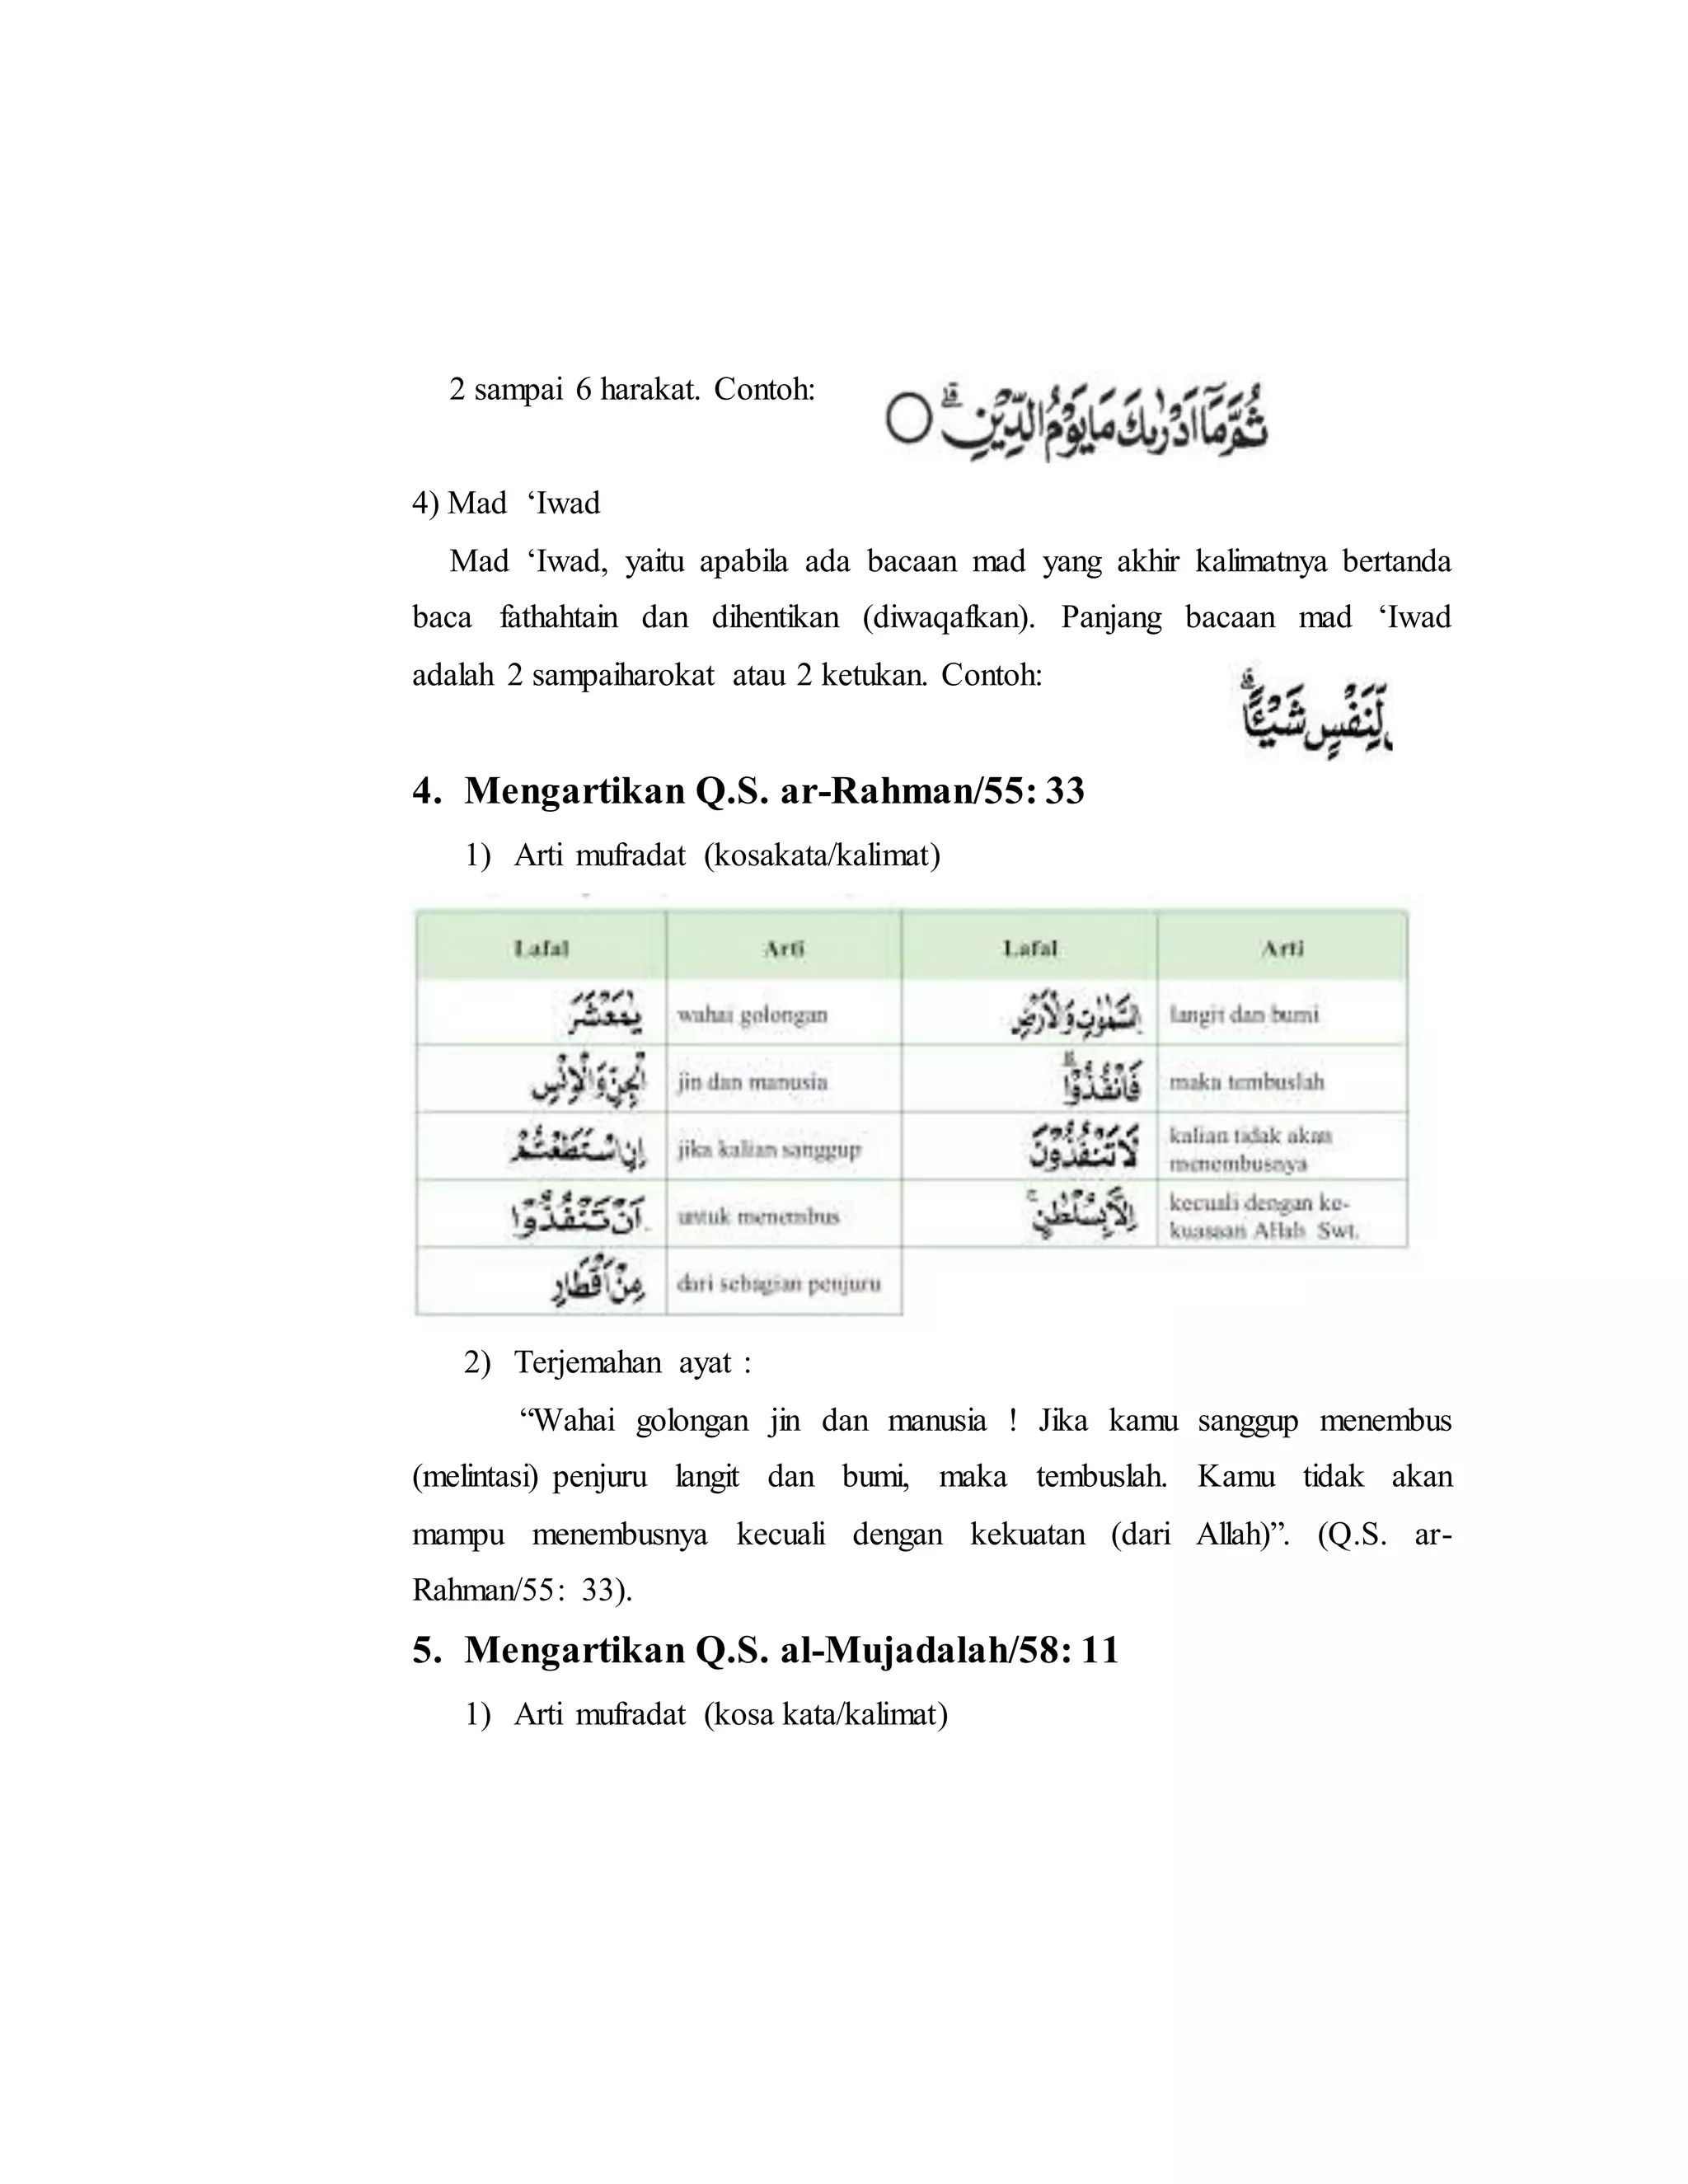 2 sampai 6 harakat. Contoh: ثُمَّ مَآ اَدْرٰىكَ مَا يَوْمُ الدِّيْنِۗ
4) Mad ‘Iwad
Mad ‘Iwad, yaitu apabila ada bacaan mad yang akhir kalimatnya bertanda
baca fathahtain dan dihentikan (diwaqafkan). Panjang bacaan mad ‘Iwad
adalah 2 sampaiharokat atau 2 ketukan. Contoh: لِّنَفْسٍ شَيْـًٔاۗ
4. Mengartikan Q.S. ar-Rahman/55: 33
1) Arti mufradat (kosakata/kalimat)
Lafal Arti Lafal Arti
يٰمَعْشَرَ wahai golongan السَّمٰوٰتِ وَالْاَرْضِ langit dan bumi
الْجِنِّ وَالْاِنْسِ jin dan manusia فَانْفُذُوْاۗ maka tembuslah
اِنِ اسْتَطَعْتُمْ jika kalian sanggup لَا تَنْفُذُوْنَ kalian tidak akan
menembusnya
اَنْ تَنْفُذُوْا untuk menembus اِلَّا بِسُلْطٰنٍۚ kecuali dengan ke-
kuasaan Allah Swt.
مِنْ اَقْطَارِ dari sebagian penjuru
2) Terjemahan ayat :
“Wahai golongan jin dan manusia ! Jika kamu sanggup menembus
(melintasi) penjuru langit dan bumi, maka tembuslah. Kamu tidak akan
mampu menembusnya kecuali dengan kekuatan (dari Allah)”. (Q.S. ar-
Rahman/55: 33).
5. Mengartikan Q.S. al-Mujadalah/58: 11
1) Arti mufradat (kosa kata/kalimat)